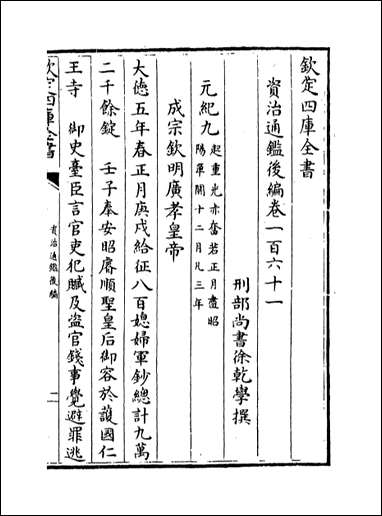 欽定四庫全書
資治通鑑後編卷一百六十一
刑部尚書徐乾學撰
元紀九起重光赤奮若正月盡昭
陽單閼十二月凡三年
成宗欽明廣孝皇帝
大德五年春正月庚戌給征八百媳婦軍鈔總計九萬
二千餘錠　壬子奉安昭睿順聖皇后御容於護國仁
王寺　御史臺臣言官吏犯贓及盜官錢事覺避罪逃
欽定四庫全書
資治通鑑後編